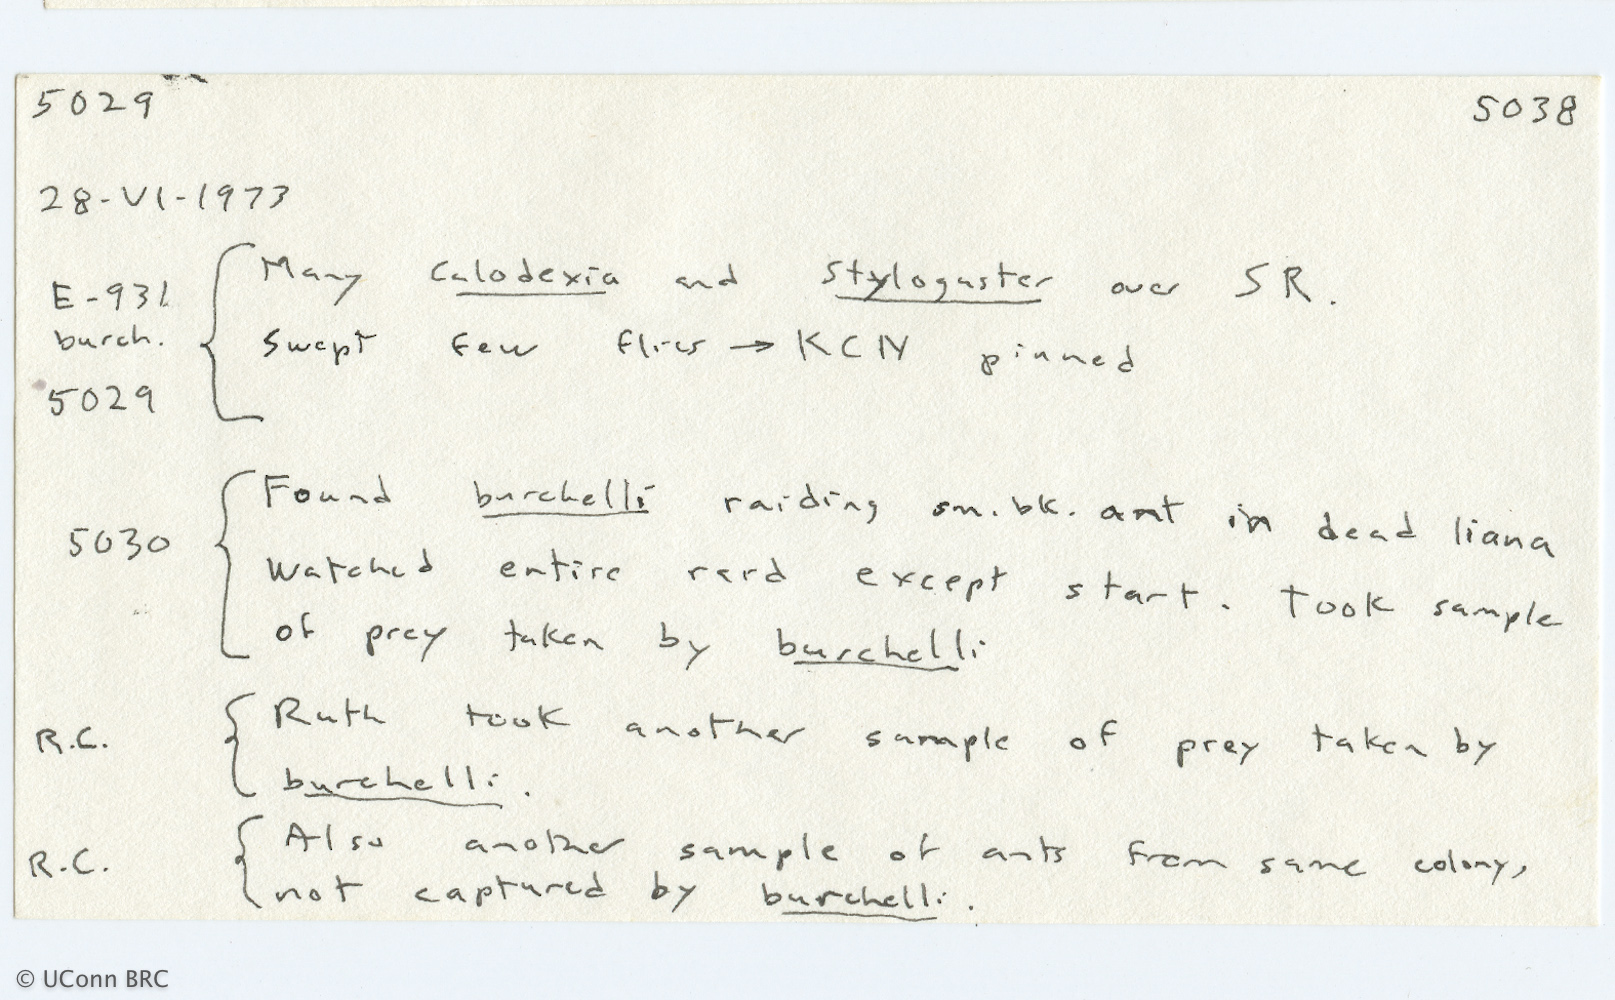 5029 5038
28-VI-1973
E-931 Many Calodexia and Stylogaster over SR.
burch. Swept few flies → KCN pinned
5029
Found burchelli raiding sm. bk. ant in dead liana
5030 Watched entire raid except start. Took sample
of prey taken by burchelli
R.C. Ruth took another sample of prey taken by
burchelli.
R.C. Also another sample of ants from same colony,
not captured by burchelli.
© UConn BRC